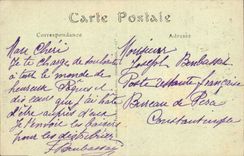 Carte Postale
Correspondance
Adresse
Mon Chéri
Je te charge de souhaiter
à tout le monde de
heureuses Pâques et
dis leurs que j'ai hâte
d'être auprès d'eux
Je t'envoie
pour
Monsieur
Joseph Benbassat
Poste française
Bureau de Pera
Constantinople